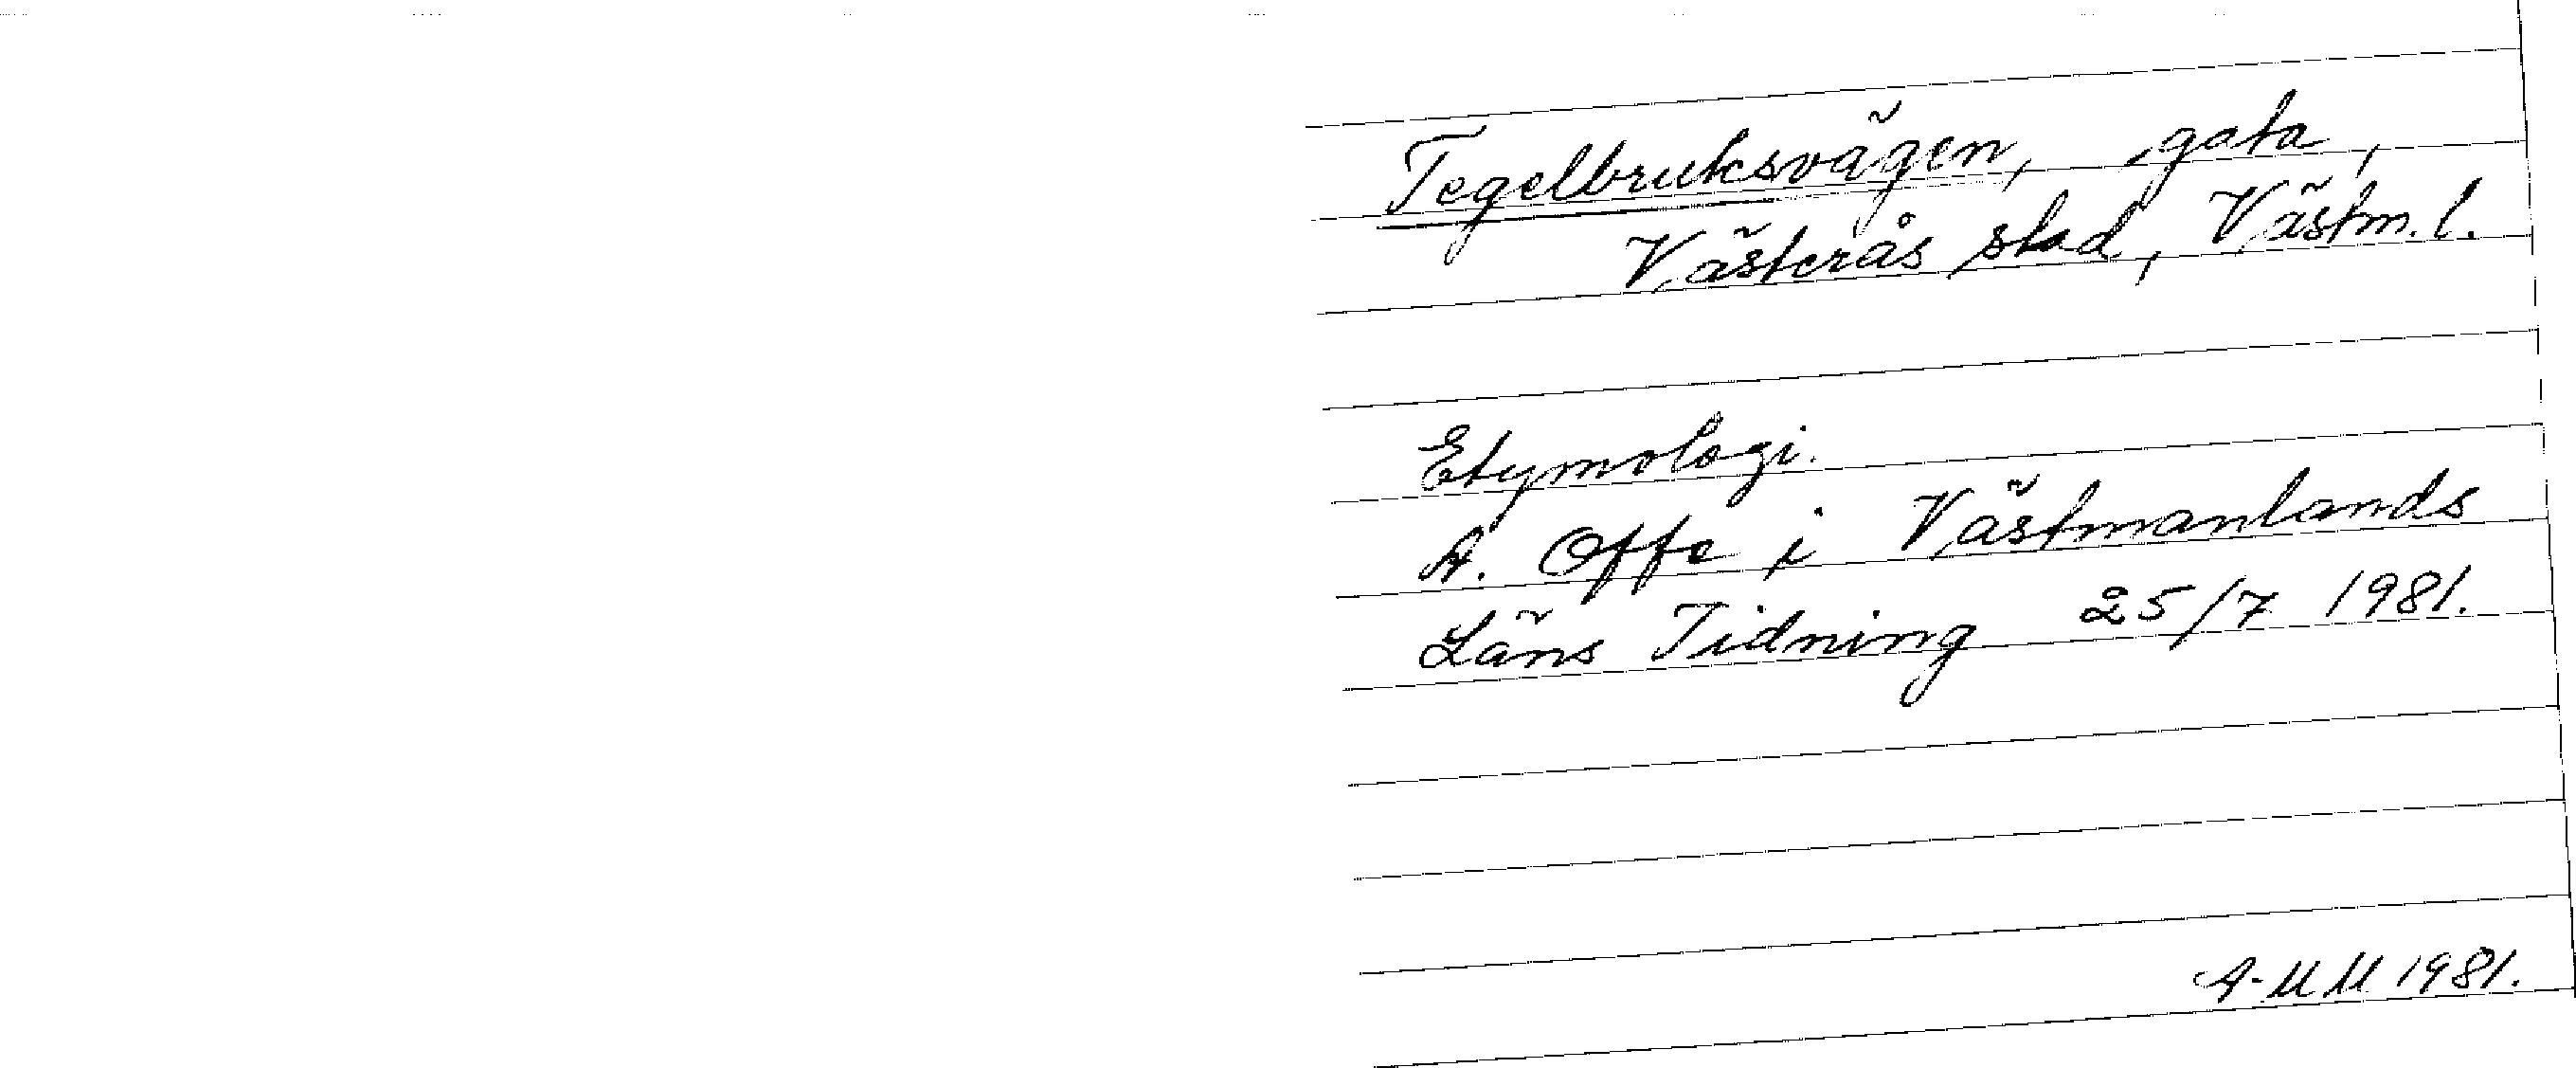 Tegelbruksvägen, gata,
Västerås stad, Västm. l.
Etymologi.
A. Offe i Västmanlands
Läns Tidning 25/7 1981.
A-MM 1981.